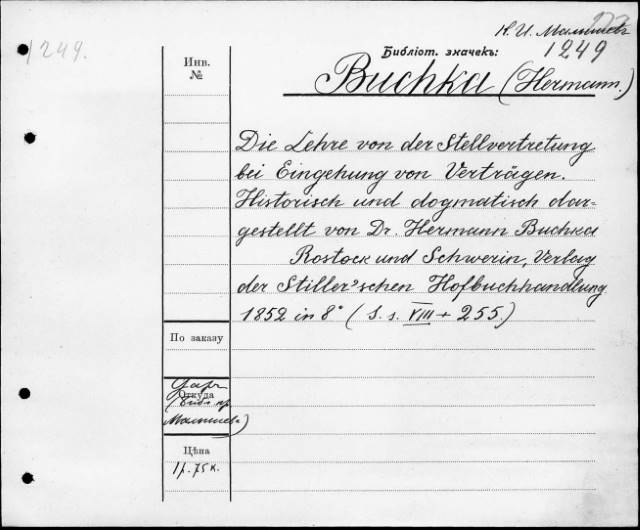 Н. И. Малышевъ
1249.
Библіот. значекъ:
1249
Инв.
№
Buchka (Hermann.)
Die Lehre von der Stellvertretung
bei Eingehung von Verträgen.
Historisch und dogmatisch dar=
gestellt von Dr. Hermann Buchka
Rostock und Schwerin, Verlag
der Stiller'schen Hofbuchhandlung
1852 in 8° (S. s. VIII + 255.)
По заказу
Откуда
Даръ
(библ. пр.
Малышева)
Цѣна
1 р. 75 к.